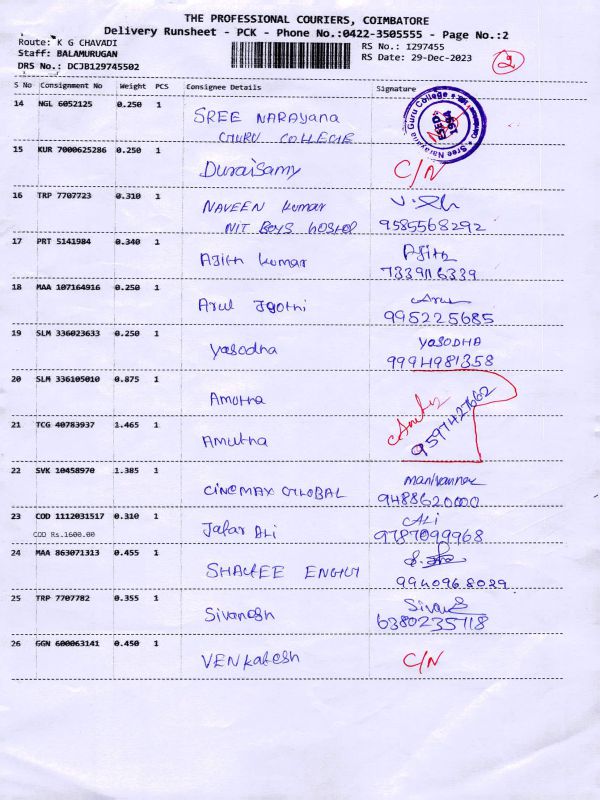 THE PROFESSIONAL COURIERS, COIMBATORE
Delivery Runsheet - PCK - Phone No.:0422-3505555 - Page No.:2
Route: K G CHAVADI
Staff: BALAMURUGAN
DRS No.: DCJB129745502
RS No.: I297455
RS Date: 29-Dec-2023
2
S No Consignment No Weight PCS Consignee Details Signature
14 NGL 6052125 0.250 1 SREE NARAYANA
GURU COLLEGE
Sree Narayana Guru College
15 KUR 7000625286 0.250 1 Duraisamy C/N
16 TRP 7707723 0.310 1 NAVEEN kumar
NIT BOYS HOSTEL 9585568292
17 PRT 5141984 0.340 1 AJith kumar AJith
7339116339
18 MAA 107164916 0.250 1 Arul Jyothi Arul
995225685
19 SLM 336023633 0.250 1 yasodha YASODHA
9994981358
20 SLM 336105010 0.875 1 Amutha
21 TCG 40783937 1.465 1 Amutha 9597427662
22 SVK 10458970 1.385 1 CINEMAX GLOBAL
9488620000
23 COD 1112031517 0.310 1 Jafar ALi ALi
COD Rs.1600.00 9787099968
24 MAA 863071313 0.455 1
9940968029
25 TRP 7707782 0.355 1 Sivanesh
6380235118
26 GGN 600063141 0.450 1 VENkatesh C/N